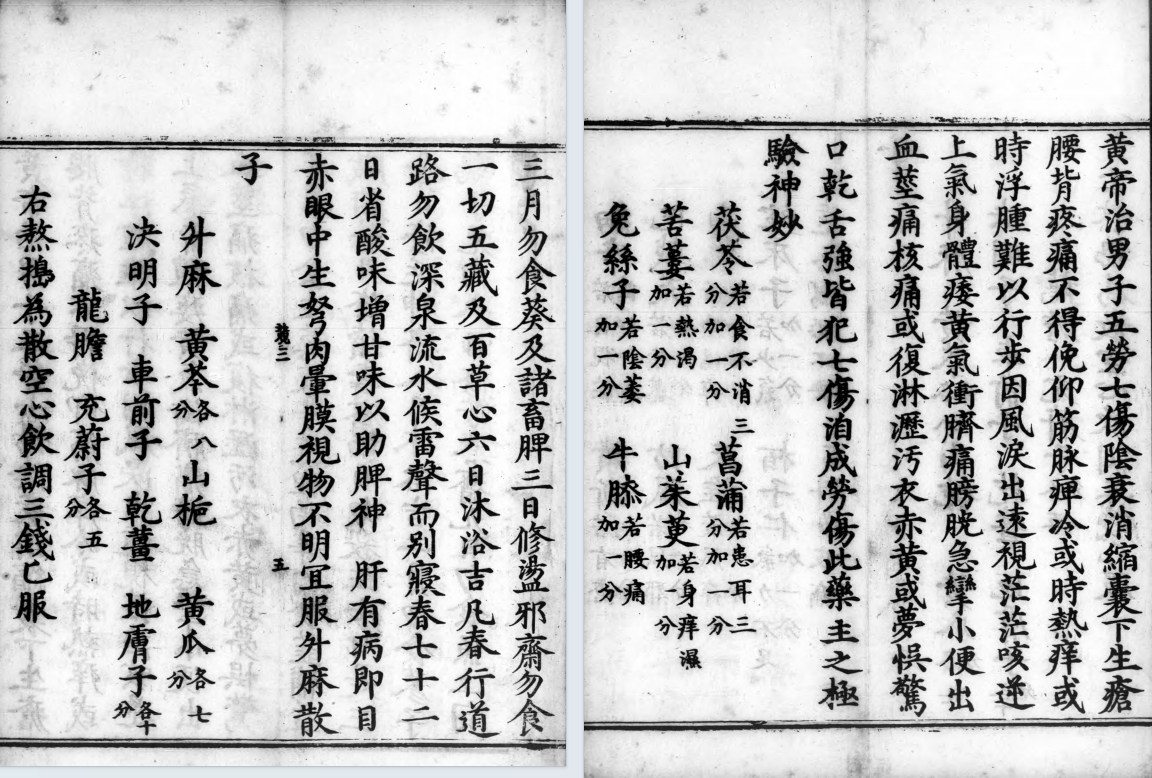 黃帝治男子五勞七傷陰衰消縮囊下生瘡
腰背疼痛不得俛仰筋脉痺冷或時熱痒或
時浮腫難以行步因風淚出遠視茫茫咳逆
上氣身體痿黃氣衝臍痛膀胱急攣小便出
血莖痛核痛或復淋瀝汚衣赤黃或夢悞驚
口乾舌強皆犯七傷洎成勞傷此藥主之極
驗神妙
茯苓若食不消三分加一分 菖蒲若患耳三分加一分
苦蔞若熱渴加一分 山茱萸若身痒濕加一分
兔絲子若陰萎加一分 牛膝若腰痛加一分
三月勿食葵及諸畜脾三日修盪邪齋勿食
一切五藏及百草心六日沐浴吉凡春行道
路勿飲深泉流水候雷聲而別寢春七十二
日省酸味增甘味以助脾神 肝有病即目
赤眼中生弩肉暈膜視物不明冝服升麻散
號三 五
子
升麻 黃芩各八分 山梔 黃瓜各七分
決明子 車前子 乾薑 地膚子各十分
龍膽 充蔚子各五分
右熬搗為散空心飲調三錢匕服